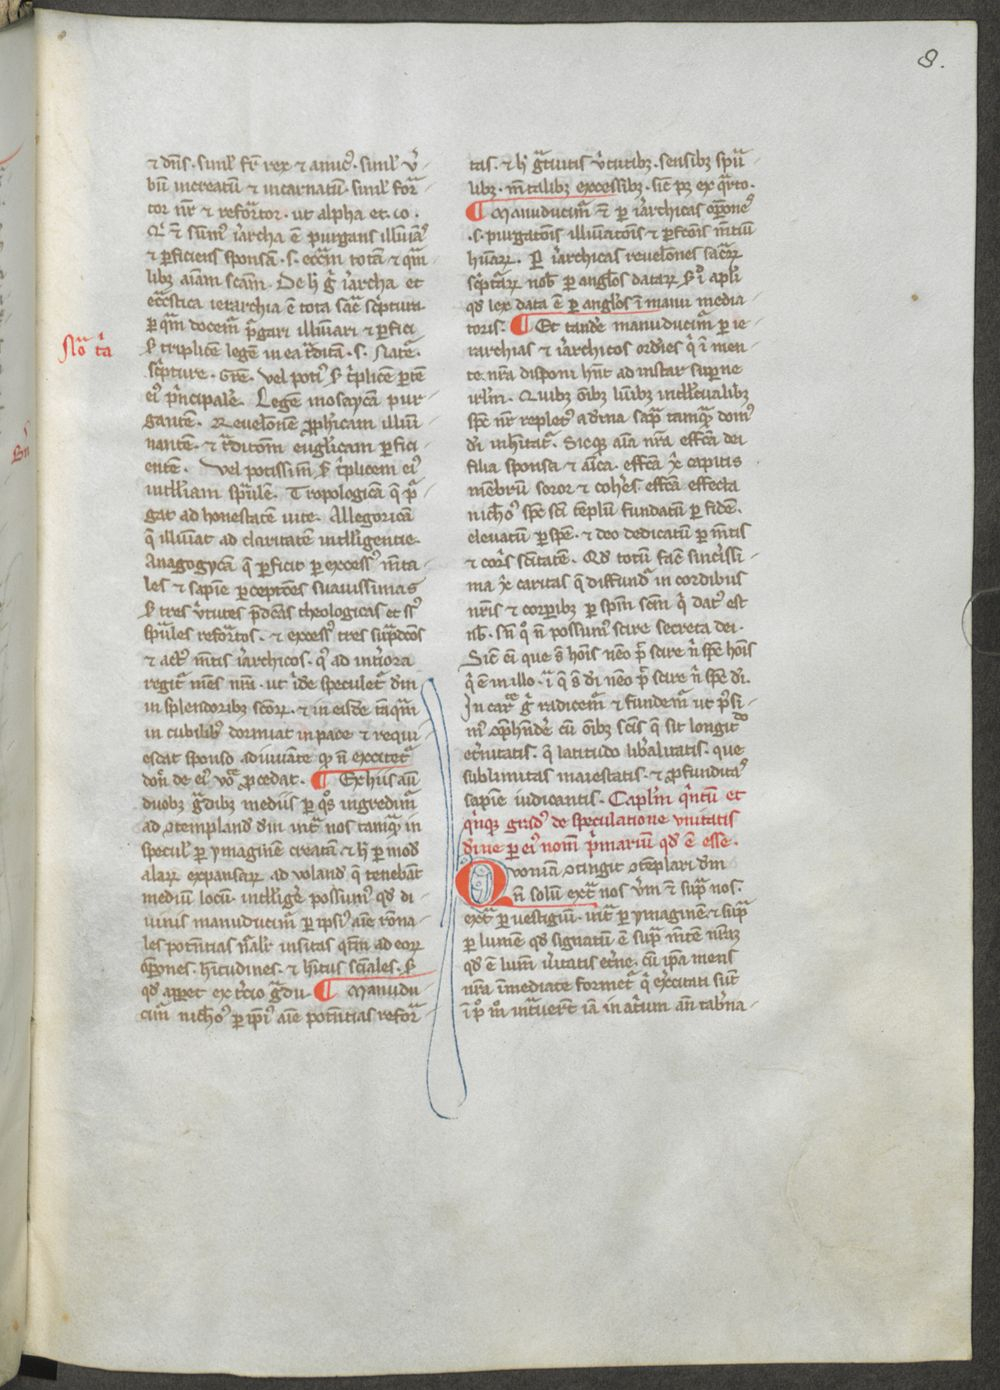 8.
⁊ dn̄s · simul fr̄ rex ⁊ amicꝰ · simul v̓-
bū increatū ⁊ incarnatū · simul for-
tor nr̄ ⁊ reformator · ut alpha et · ω ·
Qui ⁊ sūmꝰ iȧrcha ē purgans illūiās
⁊ ꝑficiens sponsā · s · eccꝉiam totā ⁊ quā-
libꝫ aīam scām · De hͦ gͦ iȧrcha et
eccꝉiastica ierarchia ē tota sacͣ scͥptura
ꝑ quā docem̄ pᷣgari illūīari ⁊ ꝑfici
⁊ triplicē legē in ea trͣditā · s · natͤ ·
scͥpture · grē · vel potiꝰ ẜ tͥplicē ꝑtē
eiꝰ pͥncipalē · Legē mosaycā pur-
gantē · Reuelōnē ꝓphicam illumi-
nantē · ⁊ trͣditōm euglicam ꝑfici-
entē · vel potissimū ẜ tͥplicem eiꝰ
intllīam spūalē · Tropologicā q̄ pur-
gat ad honestatē uite · Allegoricā
q̄ illūiat ad claritatē intlligentie ·
Anagogycā q̄ ꝑficit ꝑ excessꝰ mēta-
les ⁊ sapīe ꝑceptōes suauissimas
ẜ tres vͥtutes pͣdcas theologicas et sēsꝰ
spūales reformatos · ⁊ excessꝰ tres supͣdcōs
⁊ actꝰ mētis iȧrchicos · qͥbꝰ ad intͥora
regitͬ mēs nrā · ut ibidē speculetͬ dm̄
in splendoribꝫ scoꝝ · ⁊ in eisdē tāqͣm
in cubilibꝰ dormiat in pace ⁊ requi-
escat sponso adiurante qͦ n̄ excitetͬ
don̄ de eiꝰ volūtate ꝓcedat · ¶ Ex hiis aūt
duobꝫ gͣdibꝫ mediis ꝑ qͦs ingredimͬ
ad ꝯtemplandū dm̄ intͣ nos tamqͣm in
speculꝰ ꝑ ymaginē creatā ⁊ hͦ ꝑ modū
alaꝝ expansaꝝ ad volandū q̄ tenebāt
mediū locū · intlligͤ possumꝰ qd̄ di-
uinis manuducimͬ ꝑ ipsiꝰ aīe rōna-
les potn̄tias nͣalr̄ insitas qn̄tum ad eoꝝ
oꝑōnes · hītudines · ⁊ hītus scīales · ẜ
qd̄ apparet ex tͥcio gͣdu · ¶ Manudu-
cimͬ nichͦꝰ ꝑ ipͥꝰ aīe potn̄tias refor-
tas · ⁊ hͦ gͣtuitis vͥtutibꝫ · sensibꝫ spūa-
libꝫ · mētalibꝫ excessibꝫ · sic̄ pꝫ ex qͣrto ·
¶ Manuducimͬ ⁊ ꝑ iȧrchicas oꝑōnes
· s · purgatōis illūiatōis ⁊ ꝑfectōis mētiū
hūaꝝ · Per iȧrchicas reuelōnes sacͣꝝ
scͥptaꝝ nob̄ ꝑ anglos dataꝝ ẜ illud apli
qd̄ lex data ē ꝑ anglos ī manu media-
toris · ¶ Et tandē manuducimͬ ꝑ ie-
rarchias ⁊ iȧrchicos ordīes qͥ ī men-
te nrā disponi hn̄t ad instar supͤne
irlm̄ · Quibꝫ oībꝫ lūībꝫ intllcūalibꝫ
mēs nrā repleta a diuina sapīa tamqͣm domꝰ
dī inhītatͬ · Sicqꝫ aīa nrā effcā dei
filia sponsa ⁊ aīca · effcā xͥ capitis
mēbrū soror ⁊ coheres effcā effecta
nichͦꝰ spc̄ scī tēplū fundatū ꝑ fidē ·
eleuatū ꝑ spē · ⁊ deo dedicatū ꝑ mētis
⁊ corꝑis scītatē · Qd̄ totū facit sincerissi-
ma xͥ caritas q̄ diffundͬ in cordibus
nrīs ⁊ corꝑibꝫ ꝑ spm̄ scm̄ qͥ datꝰ est
nob̄ · sn̄ qͦ n̄ possumꝰ scire secreta dei ·
Sic̄ eī que sūt hoīs nēo pōt scire nͥ spc̄ hoīs
qͥ ē in illo · ita q̄ sūt dī nēo pōt scire nͥ spc̄ dī ·
In caritate gͦ radicemͬ ⁊ fundemͬ ut possi-
mꝰ ꝯpͤhendͤ cū oībꝫ scīs q̄ sit longitudo
etn̄itatis · q̄ latitudo libalitatis · que
sublimitas maiestatis · ⁊ ꝓfunditas
sapīe iudicantis · Caplm̄ qͥntū et
qͥnqꝫ gradꝰ de speculatione unitatis
diuine ꝑ eiꝰ nom̄ pͥmariū qd̄ ē esse ·
Quoniā ꝯtingit ꝯtēplari dm̄
n̄ solū extͣ nos vͬm ⁊ supͣ nos ·
extͣ ꝑ uestigiū · intͣ ꝑ ymaginē ⁊ supͣ
ꝑ lumē qd̄ signatū ē supͣ mētē nrām
qd̄ ē lumē vͥitatis etn̄e · cū ipͣa mens
nrā īmediate formetͬ qͥ exͤcitati sūt
ī pͦ mͦ intͣuert̄ iā in atͥum aūte tabn̄a-
Nota